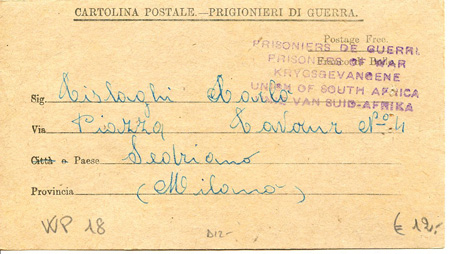 CARTOLINA POSTALE.—PRIGIONIERI DI GUERRA.
Postage Free.
PRISONIERS DE GUERRE
PRISONERS OF WAR
KRYGSGEVANGENE
UNION OF SOUTH AFRICA
VAN SUID-AFRIKA
Sig. Paolo
Via Piazza Cavour N.ro 4
Città o Paese Sedriano
Provincia (Milano)
WP 18
D12-
€ 12.-